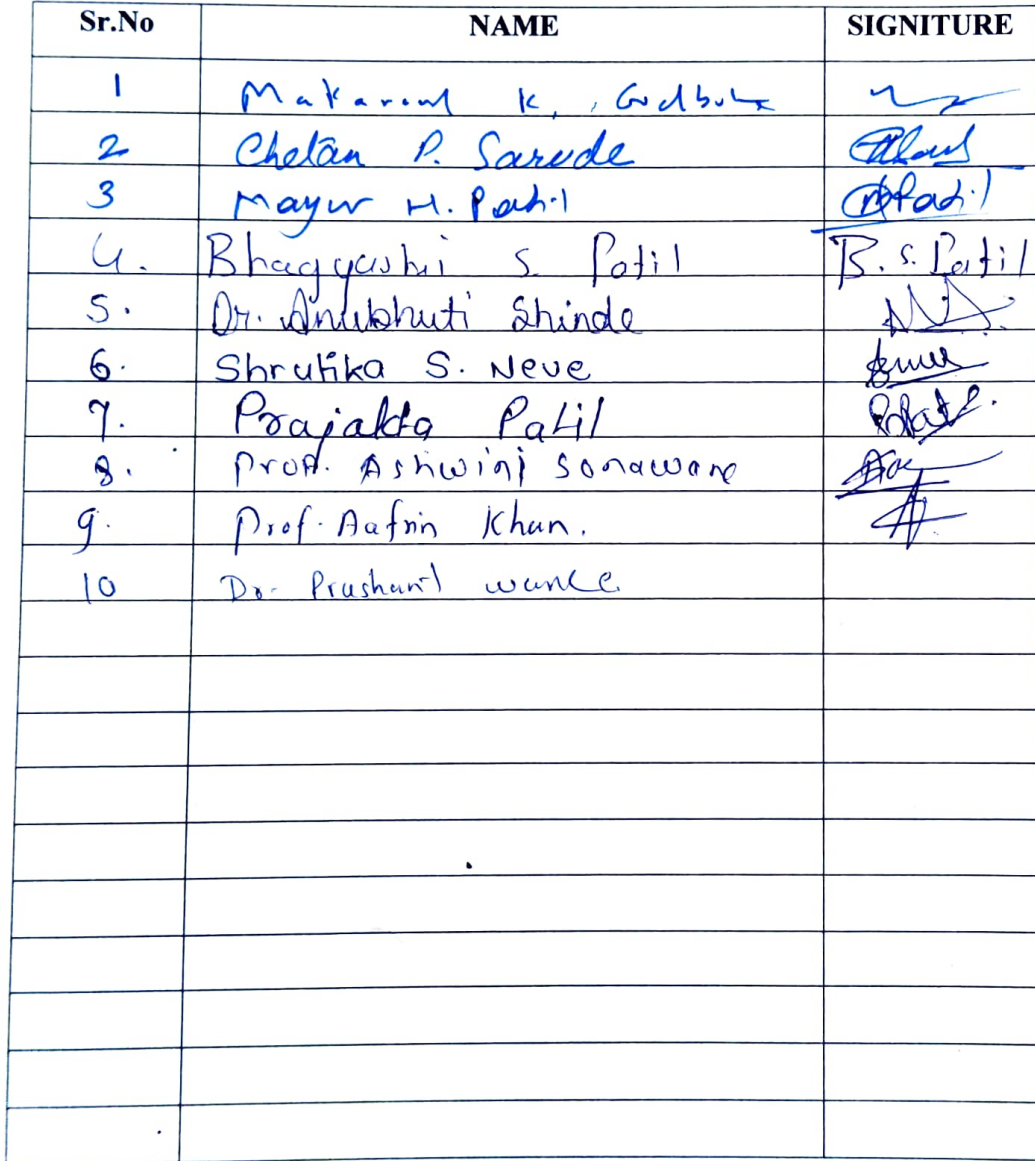 Sr.No NAME SIGNITURE
1 Makarand K. Godbole
2 Chetan P. Sarode
3 Mayur H. Patil
4. Bhagyashri S. Patil B. S. Patil
5. Dr. Anubhuti Shinde
6. Shrutika S. Neve
7. Prajakta Patil
8. Prof. Ashwini Sonawane
9. Prof. Aafrin Khan.
10 Dr. Prashant